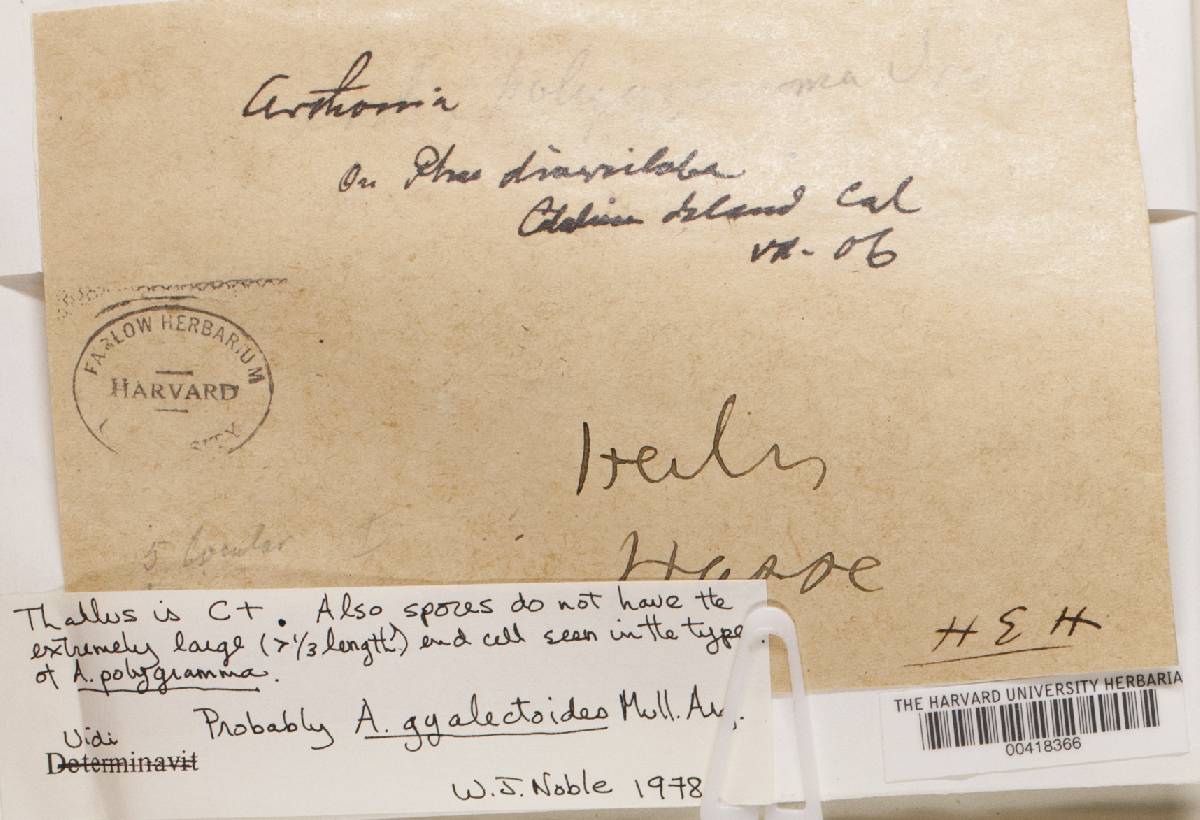 Arthonia
On Rhus diversiloba
Catalina Island Cal
06
FARLOW HERBARIUM
HARVARD
SITY
Herb.
Hasse
5 locular
H E H
Thallus is C+. Also spores do not have the
extremely large (>1/3 length!) end cell seen in the type
of A. polygramma.
Probably A. gyalectoides Mull. Arg.
Vidi
Determinavit
W.J. Noble 1978
THE HARVARD UNIVERSITY HERBARIA
00418366